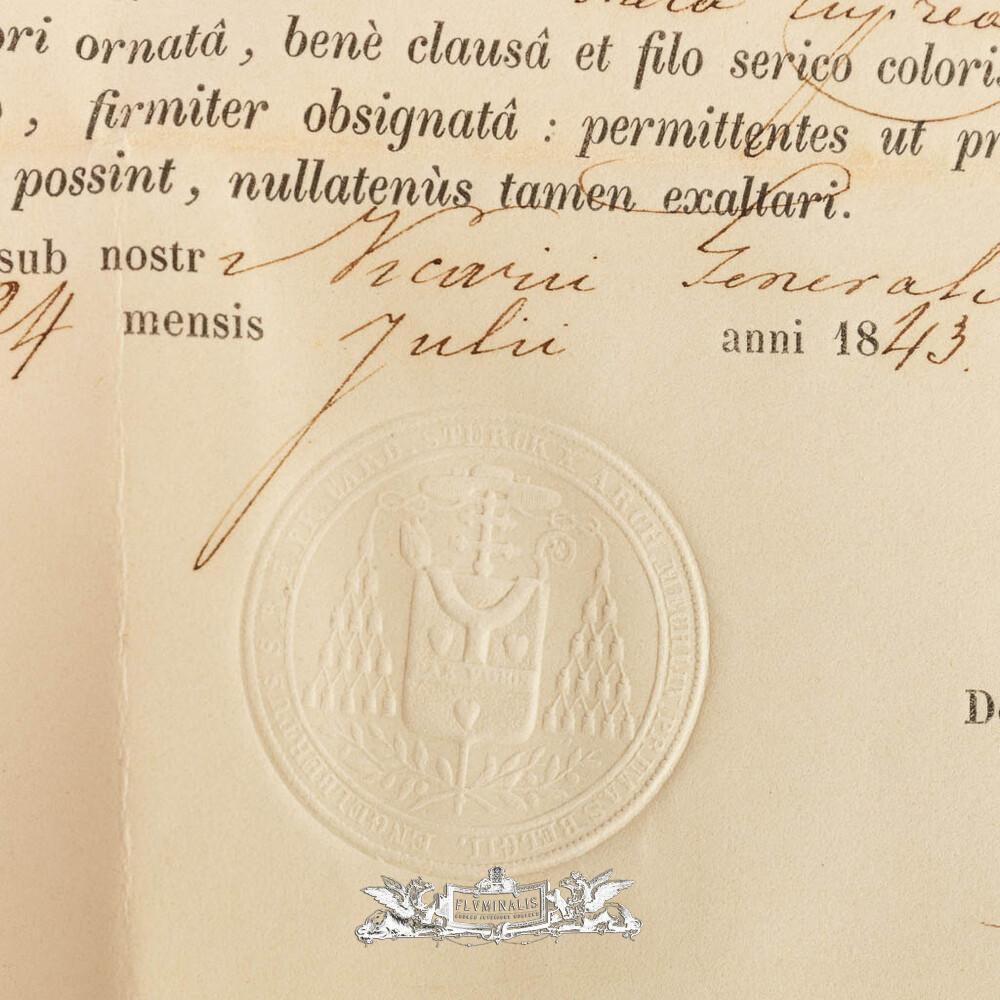 ori ornatâ, benè clausâ et filo serico coloris
, firmiter obsignatâ : permittentes ut pr
possint, nullatenùs tamen exaltari.
sub nostr Vicarii Generali
24 mensis Julii anni 1843.
STERCKX ARCH
PRIMAS BELGII
FLVMINALIS